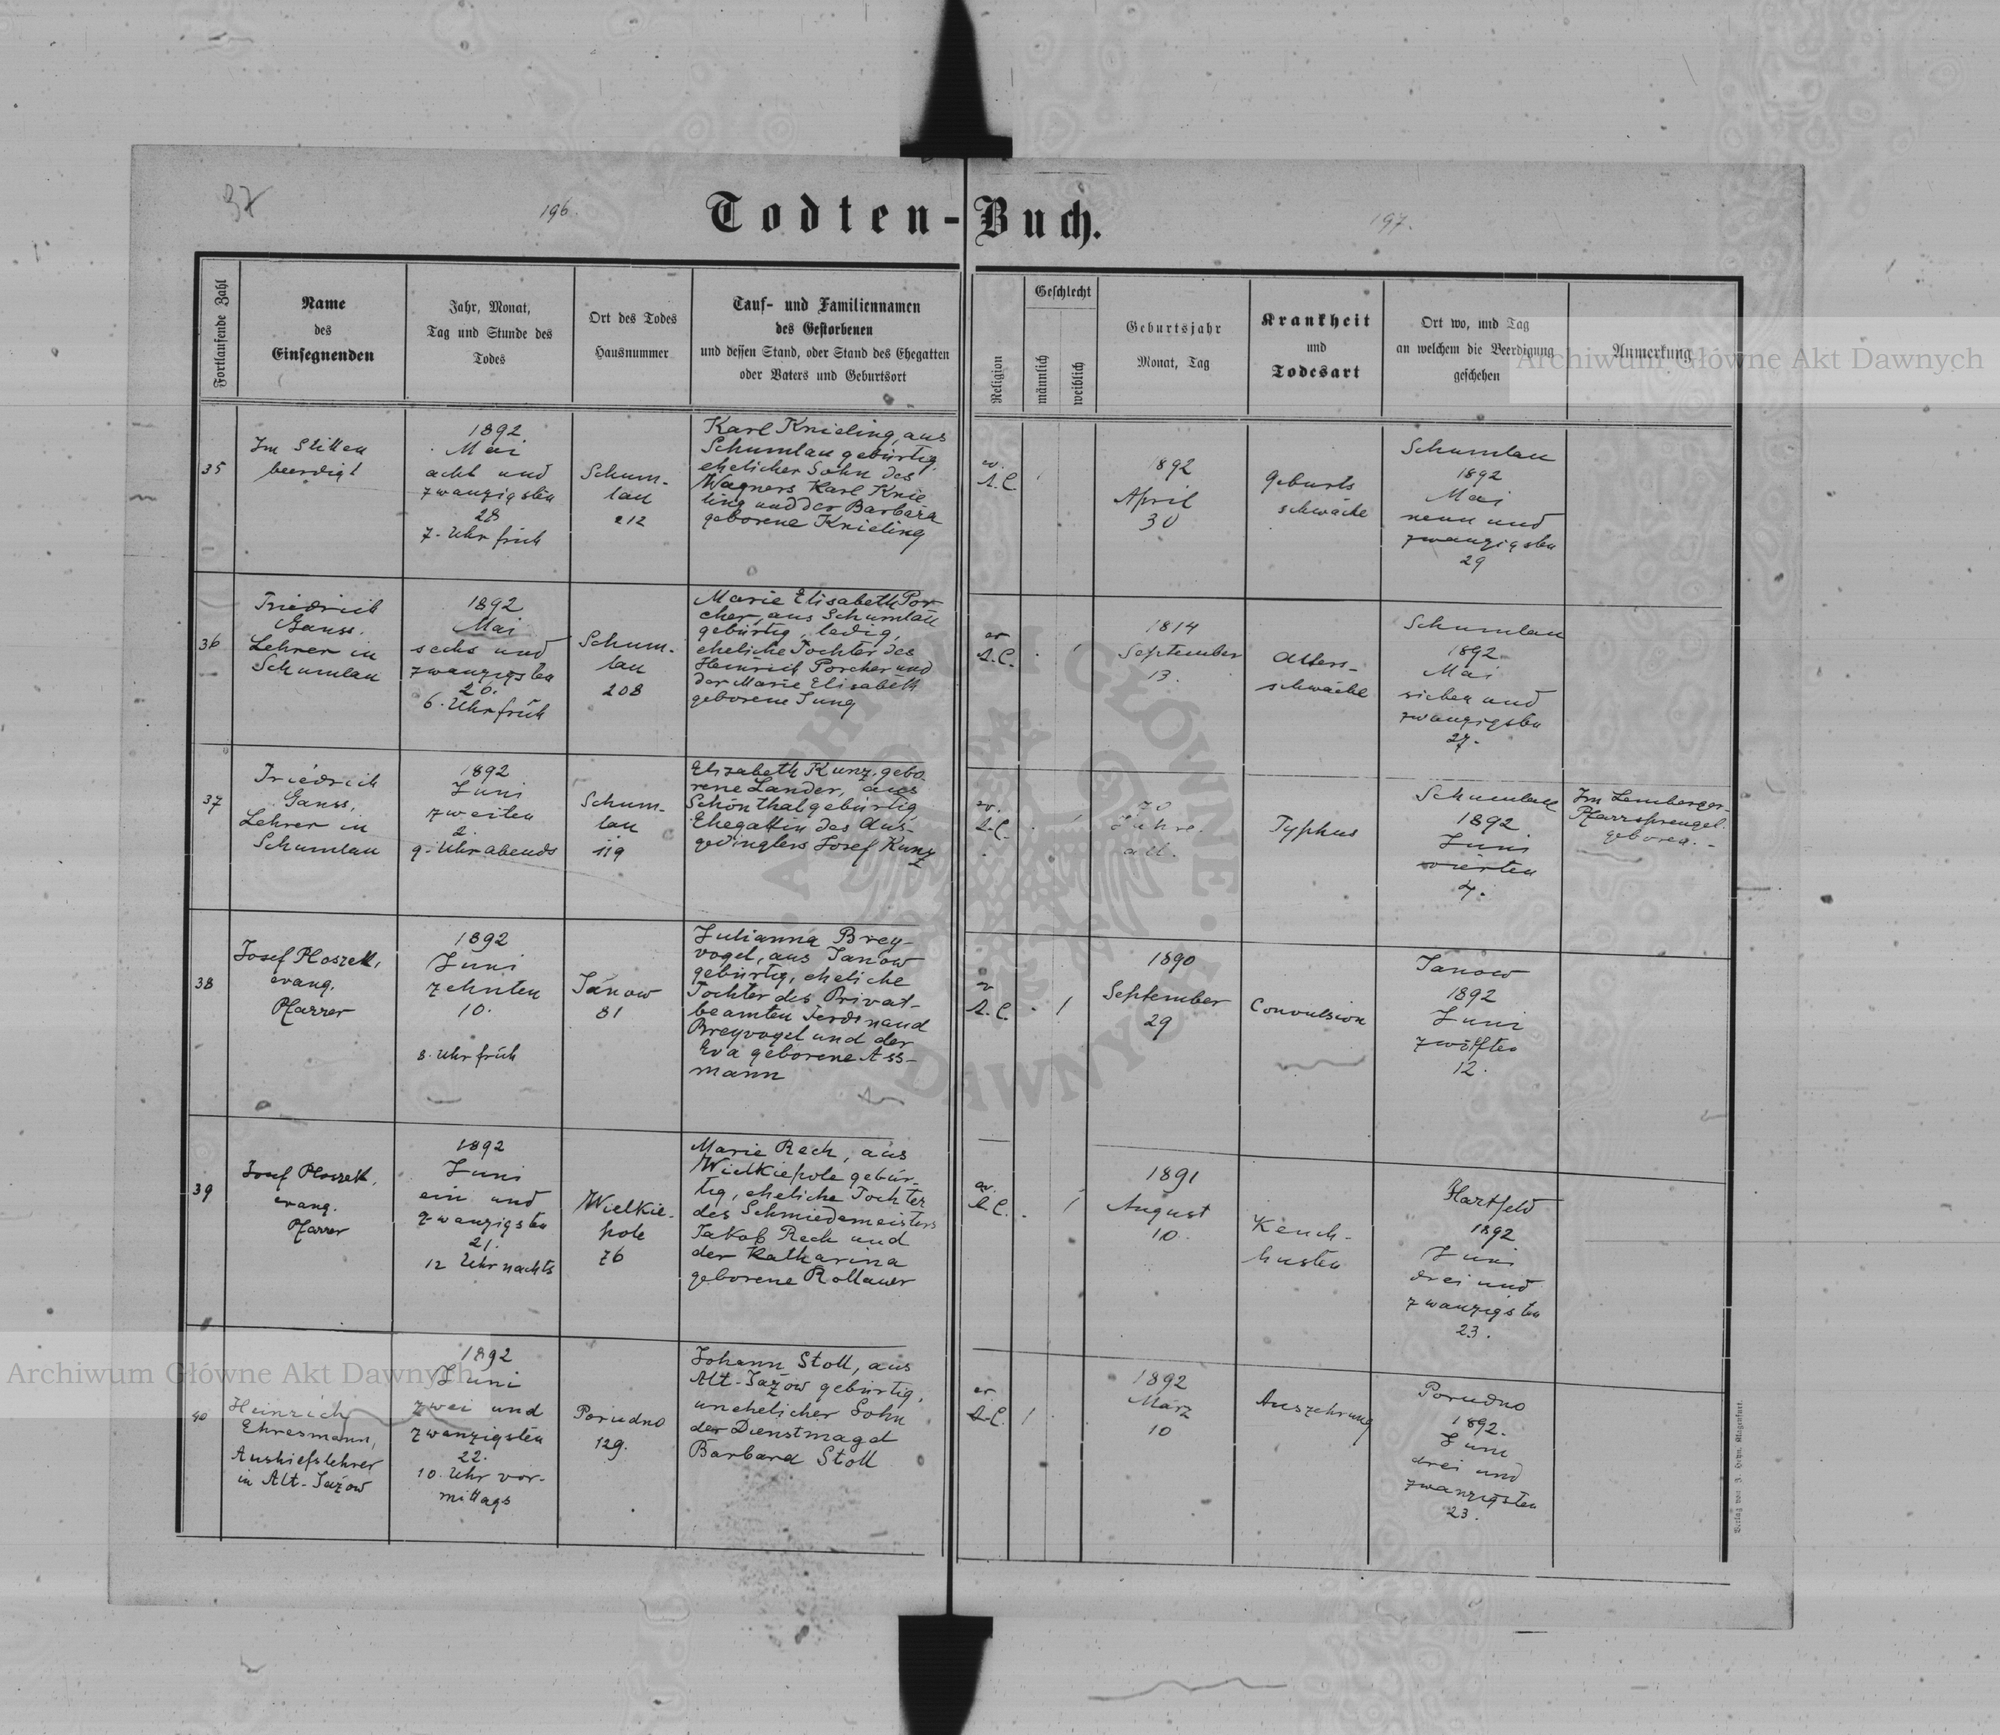 37
196.
197.
Todten-Buch.
Fortlaufende Zahl
Name
des
Einsegnenden
Jahr, Monat,
Tag und Stunde des
Todes
Ort des Todes
Hausnummer
Tauf- und Familiennamen
des Gestorbenen
und dessen Stand, oder Stand des Ehegatten
oder Vaters und Geburtsort
Religion
Geschlecht
männlich
weiblich
Geburtsjahr
Monat, Tag
Krankheit
und
Todesart
Ort wo, und Tag
an welchem die Beerdigung
geschehen
Anmerkung
35
Im Stillen
beerdigt
1892
Mai
acht und
zwanzigsten
28
7. Uhr früh
Schum-
lau
212
Karl Knieling, aus
Schumlau gebürtig
ehelicher Sohn des
Wagners Karl Knie
ling und der Barbara
geborene Knieling
ev.
A.C.
1892
April
30
Geburts
schwäche
Schumlau
1892
Mai
neun und
zwanzigsten
29
36
Friedrich
Ganss.
Lehrer in
Schumlau
1892
Mai
sechs und
zwanzigsten
26.
6. Uhr früh
Schum-
lau
208
Marie Elisabeth Por-
cher, aus Schumlau
gebürtig, ledig,
eheliche Tochter des
Heinrich Porcher und
der Marie Elisabeth
geborene Jung
ev
A.C.
1814
September
13.
Alters-
schwäche
Schumlau
1892
Mai
sieben und
zwanzigsten
27.
37
Friedrich
Ganss,
Lehrer in
Schumlau
1892
Juni
zweiten
2.
9. Uhr abends
Schum-
lau
119
Elisabeth Kunz, gebo
rene Lander, aus
Schönthal gebürtig
Ehegattin des Aus-
gedinglers Josef Kunz
ev.
A.C.
70
Jahre
alt.
Typhus
Schumlau
1892
Juni
vierten
4.
Im Lemberger-
Pfarrsprengel
geboren.
38
Josef Ploszek,
evang.
Pfarrer
1892
Juni
zehnten
10.
8. Uhr früh
Janow
81
Julianna Brey-
vogel, aus Janow
gebürtig, eheliche
Tochter des Privat-
beamten Ferdinand
Breyvogel und der
Eva geborene Ass-
mann
ev
A.C.
1890
September
29
Convulsion
Janow
1892
Juni
zwölften
12.
39
Josef Ploszek,
evang.
Pfarrer
1892
Juni
ein und
zwanzigsten
21.
12 Uhr nachts
Wielkie-
pole
76
Marie Rech, aus
Wielkiepole gebür-
tig, eheliche Tochter
des Schmiedemeisters
Jakob Rech und
der Katharina
geborene Rollauer
ev.
A.C.
1891
August
10.
Keuch-
husten
Hartfeld
1892
Juni
drei und
zwanzigsten
23.
40
Heinrich
Ehresmann,
Aushiefslehrer
in Alt-Jażow
1892
Juni
zwei und
zwanzigsten
22.
10. Uhr vor-
mittags
Porudno
129.
Johann Stoll, aus
Alt-Jażow gebürtig,
unehelicher Sohn
der Dienstmagd
Barbara Stoll
ev
A.C.
1892
März
10
Auszehrung
Porudno
1892.
Juni
drei und
zwanzigsten
23.
Archiwum Główne Akt Dawnych
Archiwum Główne Akt Dawnych